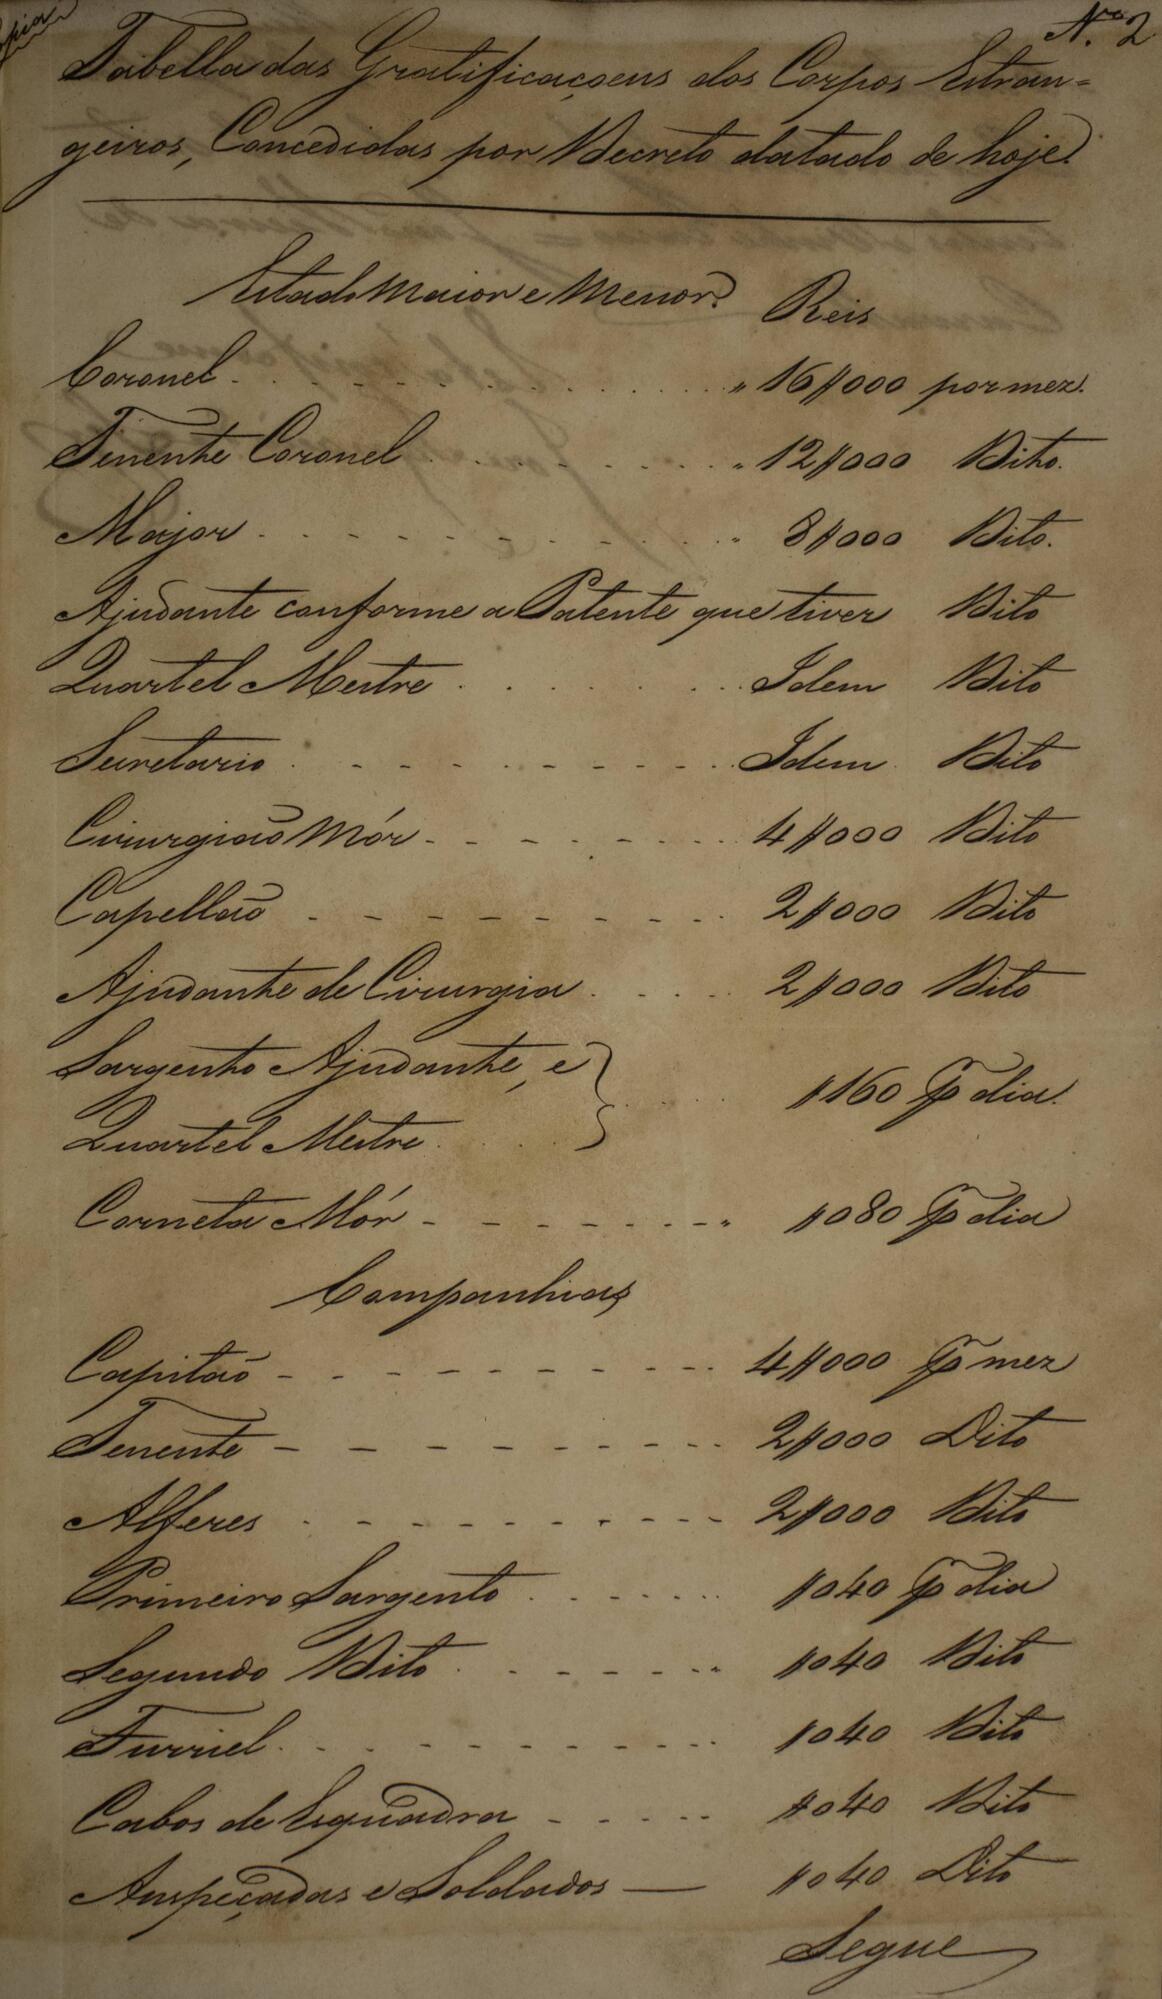 Copia
N.º 2
Tabella das Gratificaçoens dos Corpos Estran-
geiros, Concedidas por Decreto datado de hoje.
Estado Maior e Menor. Reis
Coronel . . . . . . . . . . " 16$000 por mez.
Tenente Coronel . . . . . . . " 12$000 Dito.
Major . . . . . . . . . . " 8$000 Dito.
Ajudante conforme a Patente que tiver Dito
Quartel Mestre . . . . . . . Idem Dito
Secretario . . . . . . . . . Idem Dito
Cirurgiaõ Mór - - - - - - - 4$000 Dito
Capellaõ - - - - - - - - - 2$000 Dito
Ajudante de Cirurgia . . . . 2$000 Dito
Sargento Ajudante, e
Quartel Mestre } . . . . $160 p dia.
Corneta Mór - - - - - - - " $080 p dia
Companhias
Capitaõ - - - - - - - - - 4$000 p mez
Tenente - - - - - - - - - 2$000 Dito
Alferes - - - - - - - - - 2$000 Dito
Primeiro Sargento . . . . . $040 p dia
Segundo Dito . . . . . . " $040 Dito
Furriel . . . . . . . . . $040 Dito
Cabos de Esquadra - - - - - $040 Dito
Anspeçadas e Soldados — $040 Dito
Segue